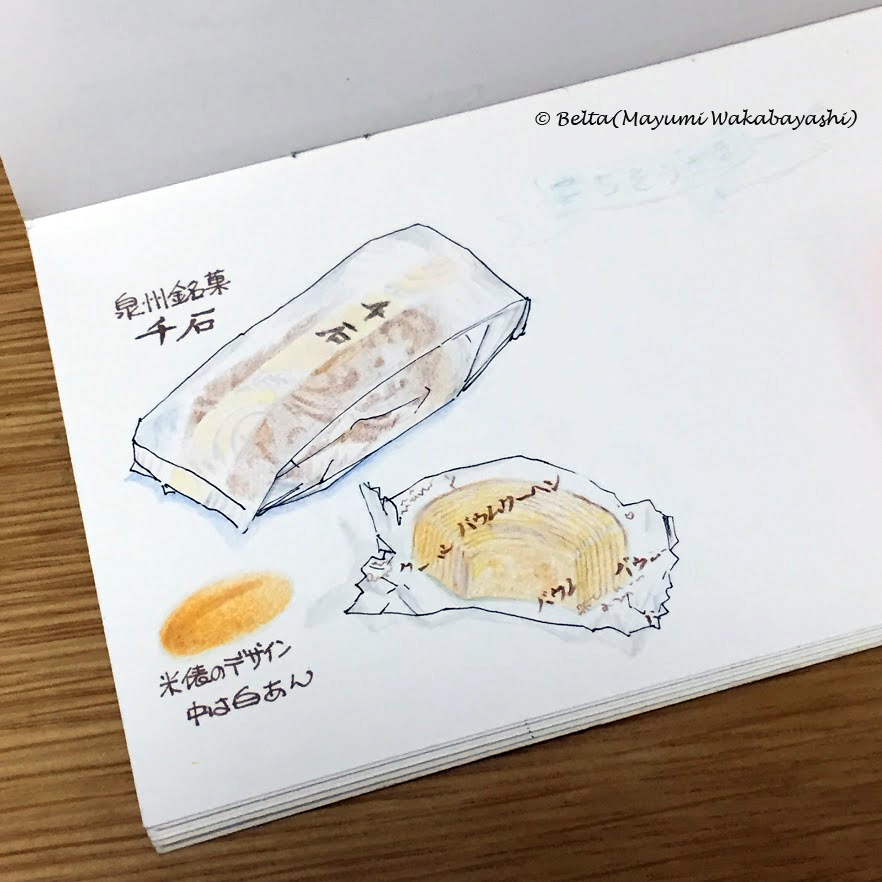 © Belta(Mayumi Wakabayashi)
泉州銘菓
千石
千石
バウムクーヘン
バウム
バウム
米俵のデザイン
中は白あん